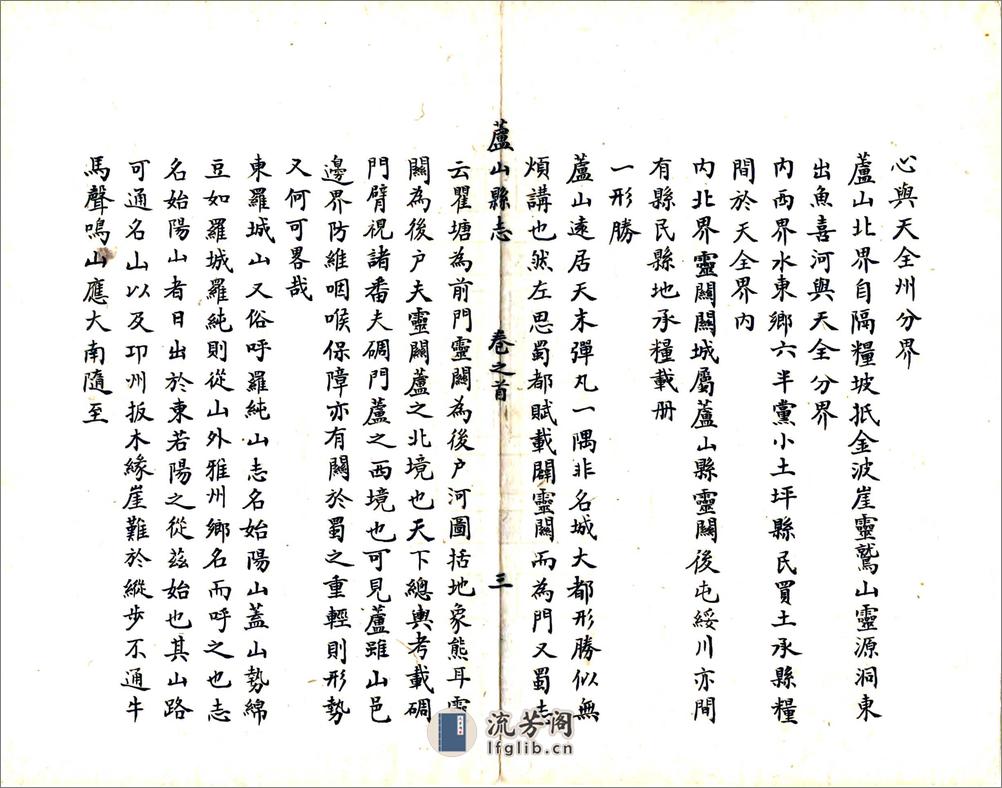 心與天全州分界
蘆山北界自隔糧坡抵金波崖靈鷲山靈源洞東
出魚喜河與天全分界
內西界水東鄉六半黨小土坪縣民買土承縣糧
間於天全界內
內北界靈關關城屬蘆山縣靈關後屯綏川亦間
有縣民縣地承糧載册
一形勝
蘆山遠居天末彈丸一隅非名城大都形勝似無
煩講也然左思蜀都賦載闢靈關而為門又蜀志
蘆山縣志 卷之首 三
云瞿塘為前門靈關為後户河圖括地象熊耳靈
關為後户夫靈關蘆之北境也天下總輿考載碉
門臂視諸番夫碉門蘆之西境也可見蘆雖山邑
邊界防維咽喉保障亦有關於蜀之重輕則形勢
又何可畧哉
東羅城山又俗呼羅純山志名始陽山蓋山勢綿
豆如羅城羅純則從山外雅州鄉名而呼之也志
名始陽山者日出於東若陽之從兹始也其山路
可通名山以及邛州扳木緣崖難於縱步不通牛
馬聲鳴山應大南隨至
流芳阁
lfglib.cn